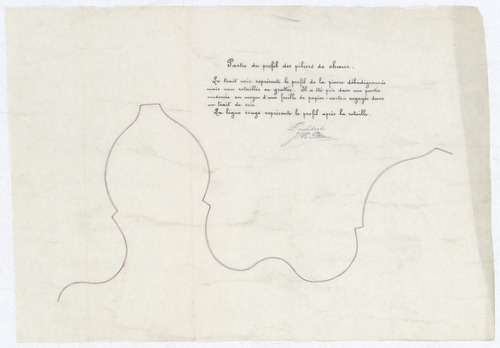 Partie du profil des piliers du chœur.
Le trait noir représente le profil de la pierre débadigeonnée
mais non retaillée ou grattée. Il a été pris dans une partie
au moyen d'une feuille de papier-carton engagée dans
un trait de scie.
La ligne rouge représente le profil après la retaille.